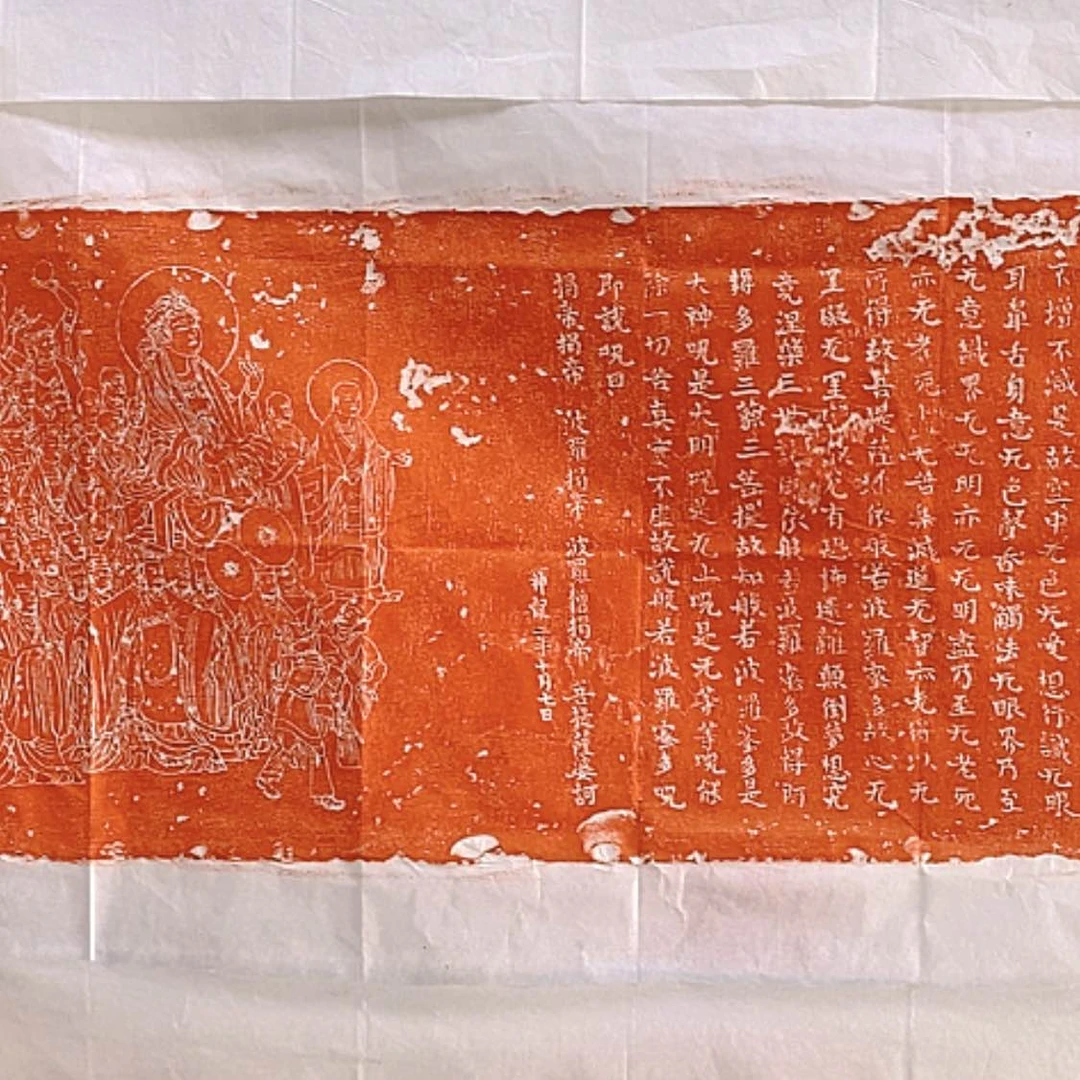 不增不减是故空中无色无受想行識无眼
耳鼻舌身意无色聲香味觸法无眼界乃至
无意識界无无明亦无无明盡乃至无老死
亦无老死无苦集滅道无智亦无得以无
所得故菩提薩埵依般若波羅蜜多故心无
罣礙无罣故无有恐怖遠離顛倒夢想究
竟涅槃三世依般若波羅蜜多故得阿
耨多羅三藐三菩提故知般若波羅蜜多是
大神呪是大明呪是无上呪是无等等呪能
除一切苦真實不虛故說般若波羅蜜多呪
即說呪曰
揭帝揭帝 波羅揭帝 波羅僧揭帝 菩提薩婆訶
二年七月七日